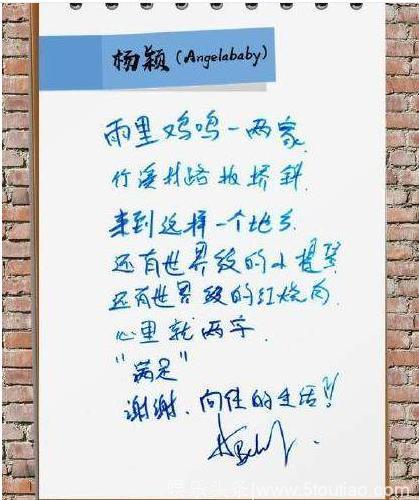 杨颖 (Angelababy)
雨里鸡鸣一两家
竹溪村路板桥斜.
来到这样一个地方
还有世界级的小提琴
还有世界级的红烧肉.
心里就两字
"满足"
谢谢.向往的生活!!
www.5toutiao.com